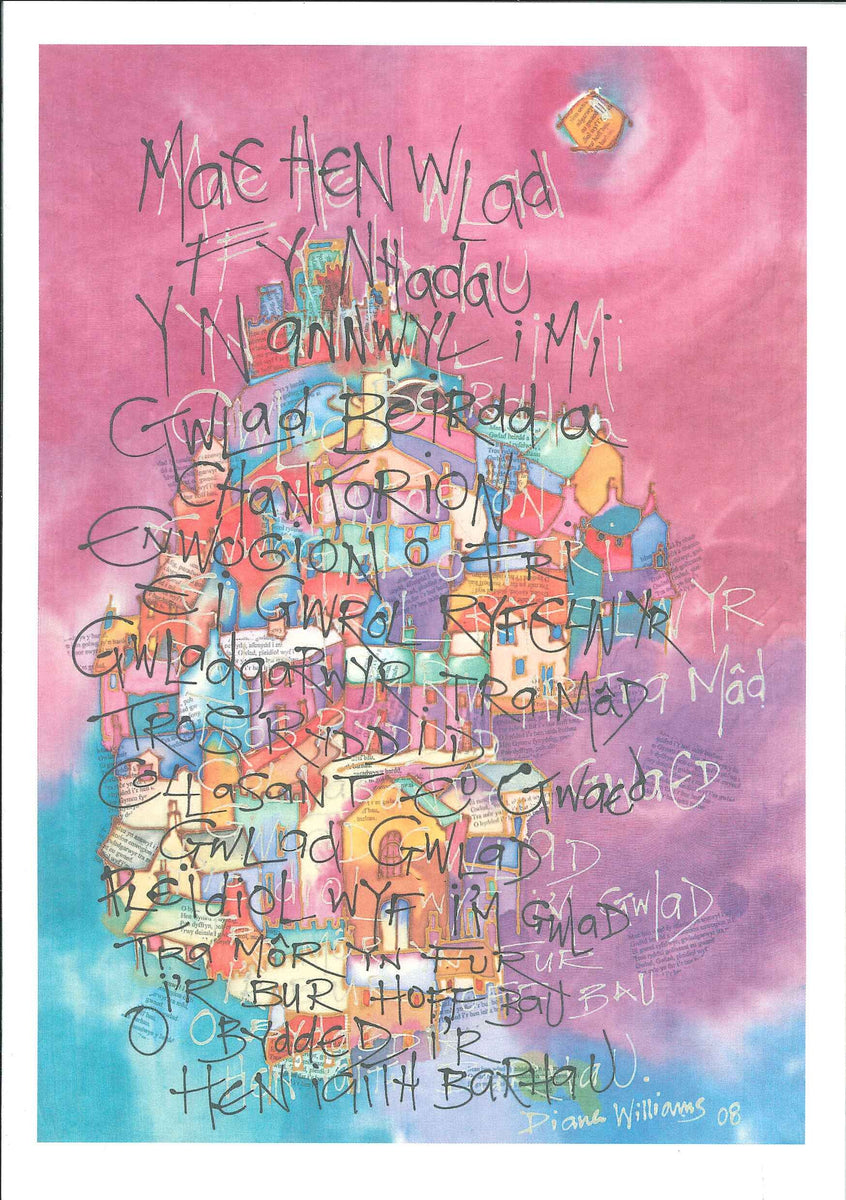 MaE HEN WLad
FY NHadaU
YN aNNWYL i Mi
GWLad BEiRdd a
CHaNTORiON
ENWOGiON O FRi
Ei GWROL RYFELWYR
GWLadGaRWYR TRa MâD
TROS RYDDiD
GOLLaSaNT EU GWaEd
GWLaD GWLaD
PLEiDiOL WYF i'M GWLaD
TRa MôR YN FUR
i'R BUR HOFF BaU
O BYDDED i'R
HEN iaiTH BaRHaU
Diana Williams 08